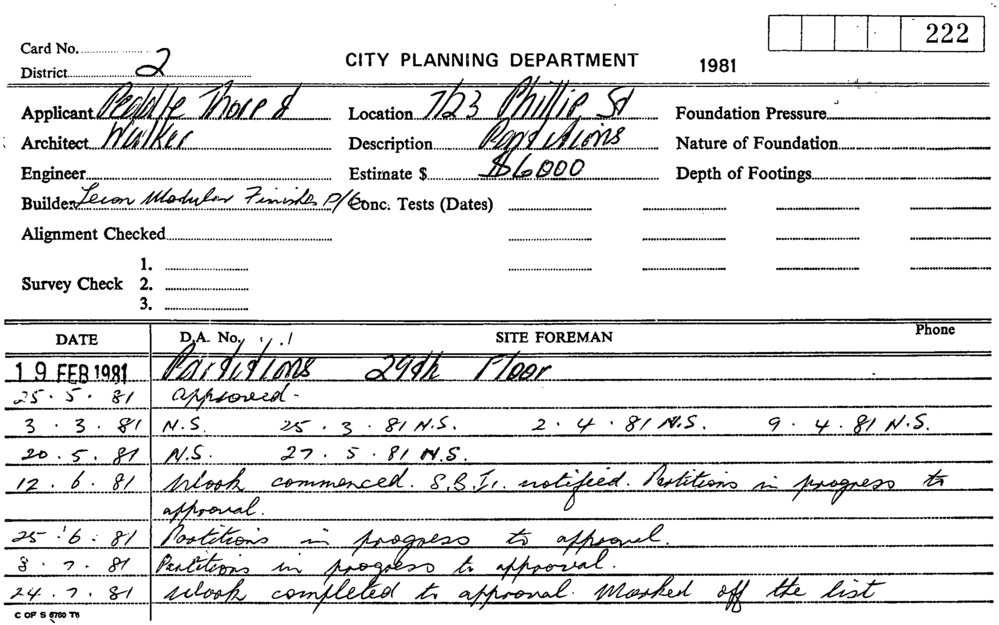 222
Card No.
District 2
CITY PLANNING DEPARTMENT 1981
Applicant Peddle Thorp & Location 7/23 Phillip St Foundation Pressure
Architect Walker Description Partitions Nature of Foundation
Engineer Estimate $ $6000 Depth of Footings
Builder Modular Finishes P/L Conc. Tests (Dates)
Alignment Checked
1.
Survey Check 2.
3.
DATE D.A. No. SITE FOREMAN Phone
19 FEB 1981 Partitions 29th Floor
25.5.81 approved.
3.3.81 N.S. 25.3.81 N.S. 2.4.81 N.S. 9.4.81 N.S.
20.5.81 N.S. 27.5.81 N.S.
12.6.81 Work commenced. S.B.I. notified. Partitions in progress to
approval.
25.6.81 Partitions in progress to approval.
8.7.81 Partitions in progress to approval.
24.7.81 Work completed to approval. Marked off the list
C OF S 6760 T6